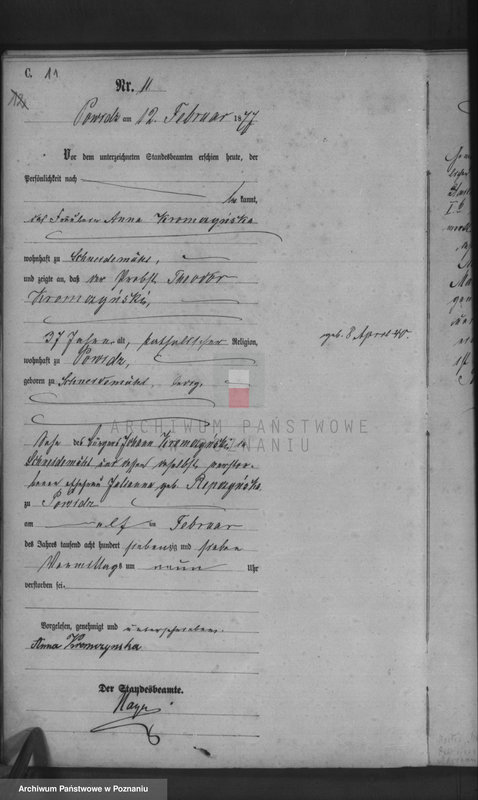 C. 11
Nr. 11
Powidz am 12. Februar 1877
Vor dem unterzeichneten Standesbeamten erschien heute, der
Persönlichkeit nach
bekannt,
das Fräulein Anna Kromczyńska
wohnhaft zu Schneidemühl,
und zeigte an, daß der Probst Theodor
Kromczyński,
37 Jahre alt, katholischer Religion,
geb. 8 April 40.
wohnhaft zu Powidz,
geboren zu Schneidemühl,
ARCHIWUM PAŃSTWOWE
W POZNANIU
Sohn des Bürgers Johann Kromczyński in
Schneidemühl und dessen daselbst verstor-
benen Ehefrau Julianna geb.
zu Powidz
am elf ten Februar
des Jahres tausend acht hundert siebenzig und sieben
Vormittags um neun Uhr
verstorben sei.
Vorgelesen, genehmigt und unterschrieben.
Anna Kromczynska
Der Standesbeamte.
Archiwum Państwowe w Poznaniu